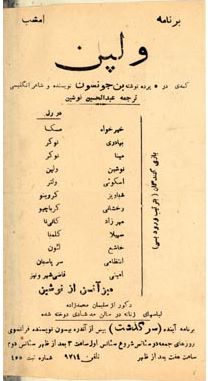 برنامه امشب
ولپن
کمدی در ۵ پرده نوشته بن جونسون نویسنده و شاعر انگلیسی
ترجمه عبدالحسین نوشین
در رل
خیرخواه مسکا
بهادری نوکر
مینا نوکر
نوشین ولپن
اسکوئی ولتر
شباویز کروینو
رخشانی کرباچیو
مهرزاد کانی‌نا
سهیلا کلمبا
خاشع لئون
انتظامی سر پاسبان
امینی قاضی شهر ونیز
بازی کنندگان (بترتیب ورود بسن)
میزانسن از نوشین
دکور از سلیمان محمدزاده
لباسهای زنانه در سالن مد شادی دوخته شده
برنامه آینده (سرگذشت) پیس از آندره بیسون نویسنده فرانسوی
روزهای جمعه دو سانس شروع سانس اول ساعت ۳ بعد از ظهر سانس دوم
ساعت هفت بعد از ظهر تلفن ۹۷۱۴ شماره ثبت ۴۵۵